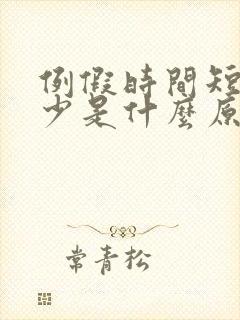 例假時間短
少是什麼原
常青松